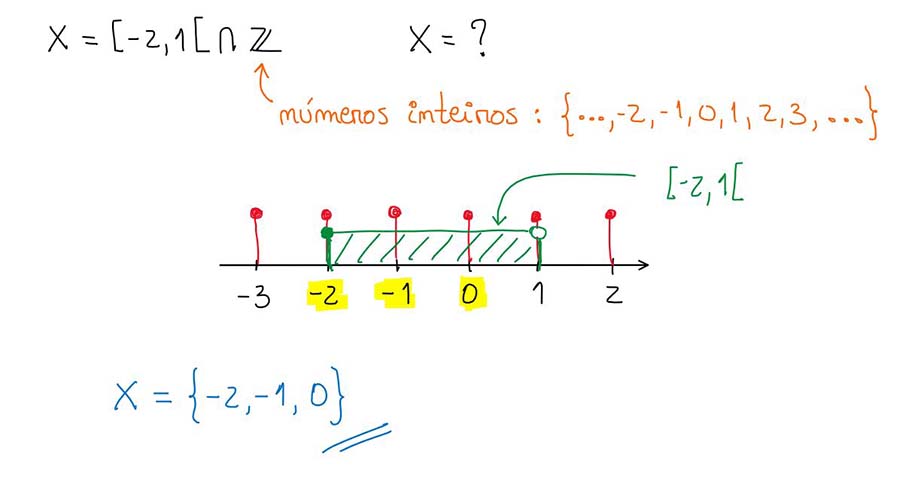 X = [-2,1[ ∩ ℤ X = ?
números inteiros : {...,-2,-1,0,1,2,3,...}
[-2,1[
-3 -2 -1 0 1 2
X = {-2,-1,0}